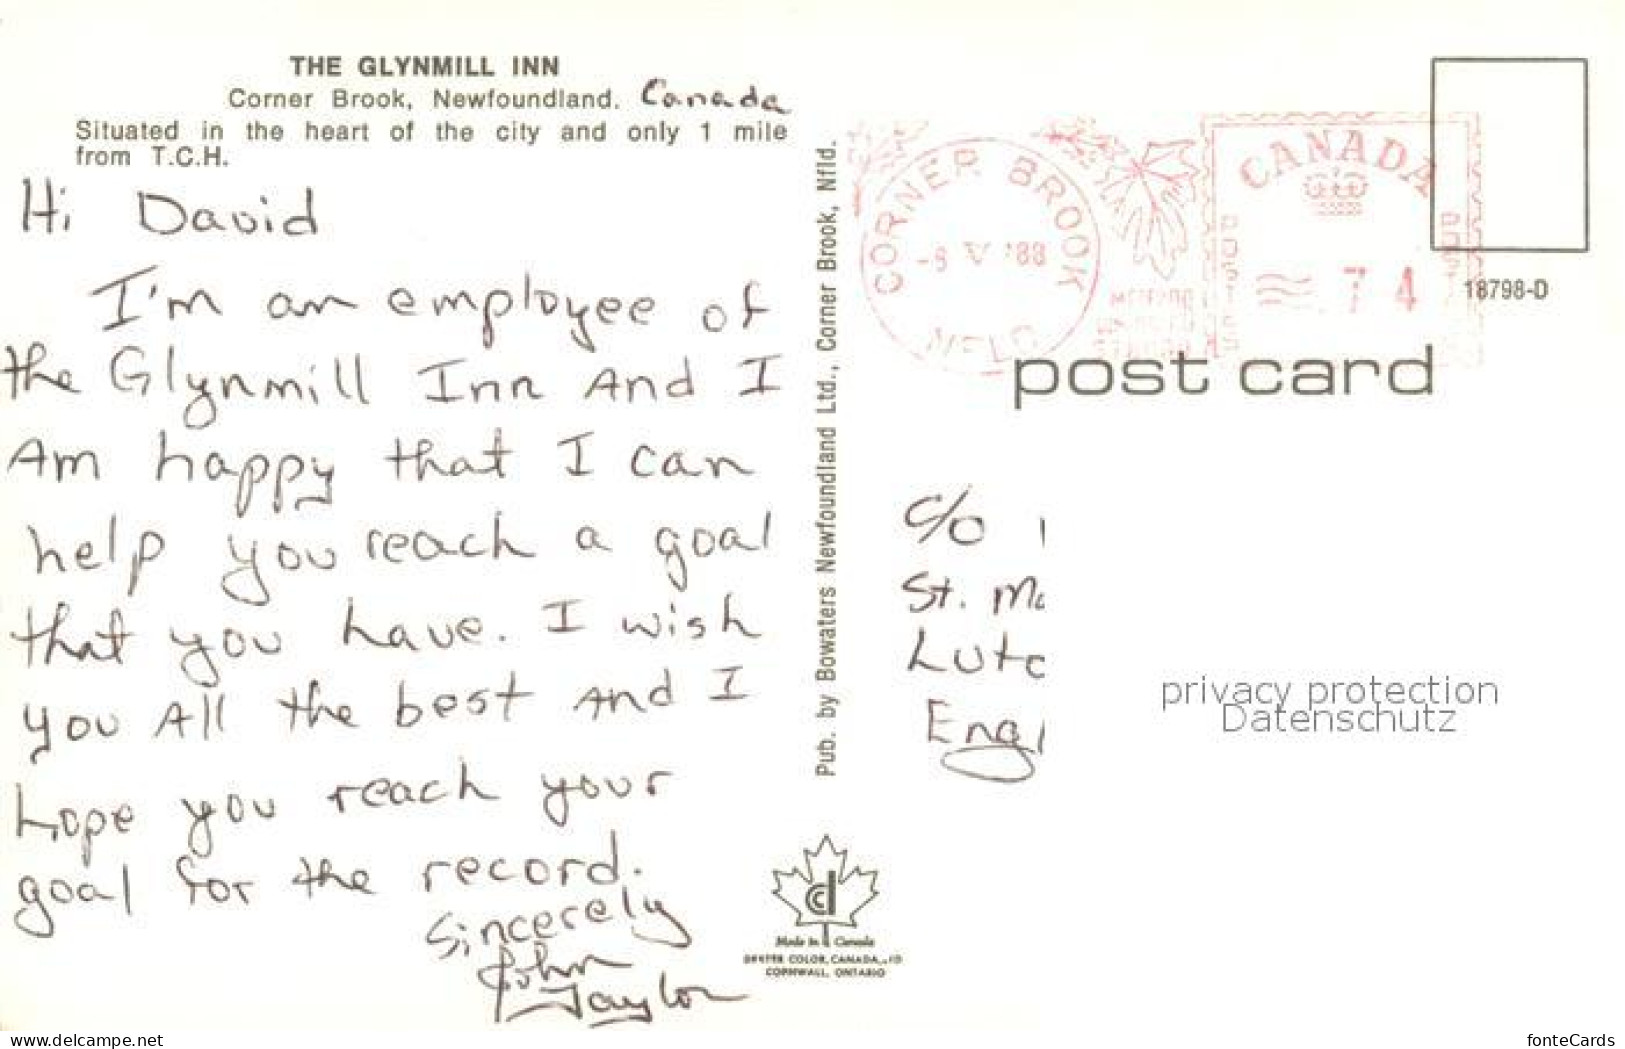 THE GLYNMILL INN
Corner Brook, Newfoundland. Canada
Situated in the heart of the city and only 1 mile
from T.C.H.
Hi David
I'm an employee of
the Glynmill Inn And I
Am happy that I can
help you reach a goal
that you have. I wish
you All the best and I
hope you reach your
goal for the record.
Sincerely
John
Taylor
Pub. by Bowaters Newfoundland Ltd., Corner Brook, Nfld.
CORNER BROOK
NFLD
V '88
CANADA
74
18798-D
post card
c/o
St.
privacy protection
Datenschutz
cd
Made in Canada
COLOR, CANADA
CORNWALL, ONTARIO
www.delcampe.net
fonteCards